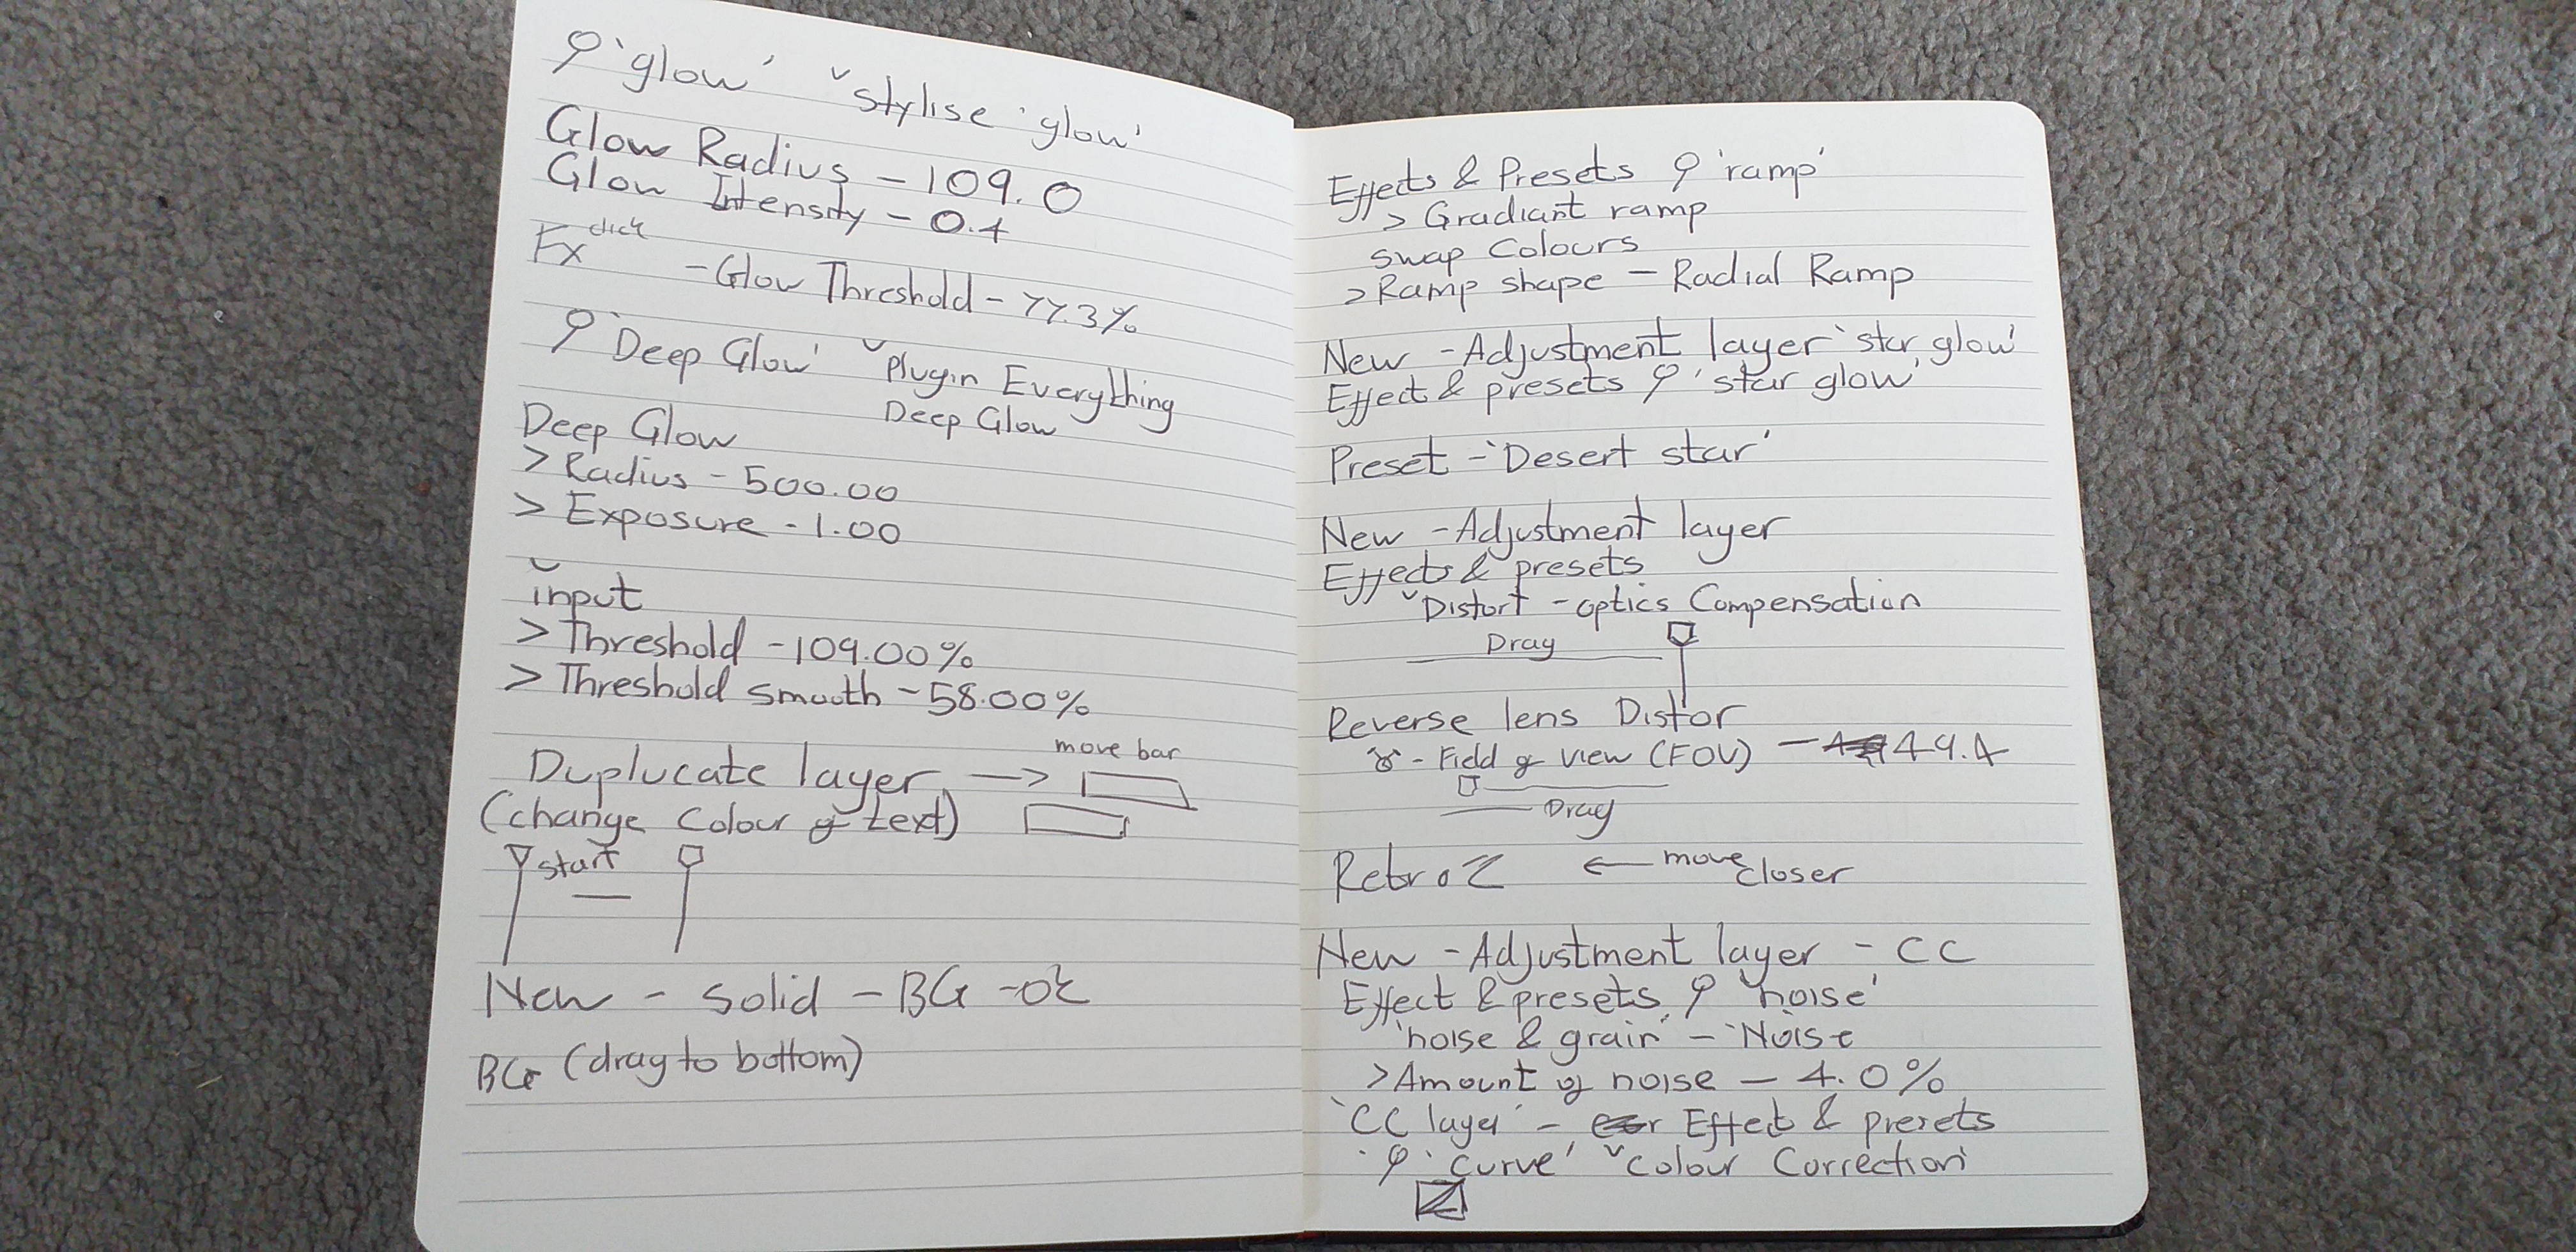 'glow' ˅ stylise 'glow'
Glow Radius - 109.0
Glow Intensity - 0.4
Fx click
- Glow Threshold - 77.3%
'Deep Glow' ˅ Plugin Everything
Deep Glow
Deep Glow
> Radius - 500.00
> Exposure - 1.00
˅ input
> Threshold - 109.00%
> Threshold smooth - 58.00%
move bar
Duplucate layer →
(change Colour of text)
start
New - solid - BG - ok
BG (drag to bottom)
Effects & Presets 'ramp'
> Gradiant ramp
swap Colours
> Ramp shape - Radial Ramp
New - Adjustment layer 'star glow'
Effect & presets 'star glow'
Preset - 'Desert star'
New - Adjustment layer
Effects & presets
˅ Distort - optics Compensation
Drag
Reverse lens Distor
- Field of view (FOV) - 49.4
Drag
← move closer
New - Adjustment layer - CC
Effect & presets 'noise'
'noise & grain' - 'Noise
> Amount of noise - 4.0%
'CC layer' - Effect & presets
'curve' ˅ colour Correction